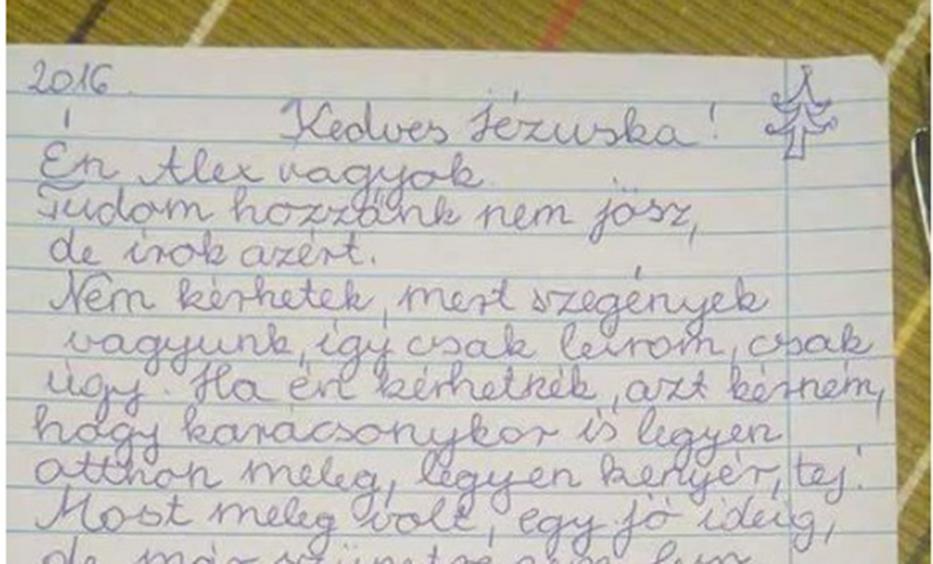 2016.
Kedves Jézuska!
Én Alex vagyok.
Tudom hozzánk nem jösz,
de írok azért.
Nem kérhetek, mert szegények
vagyunk, így csak leírom, csak
úgy. Ha én kérhetnék, azt kérném,
hogy karácsonykor is legyen
otthon meleg, legyen kenyér, tej.
Most meleg volt, egy jó ideig,
de már